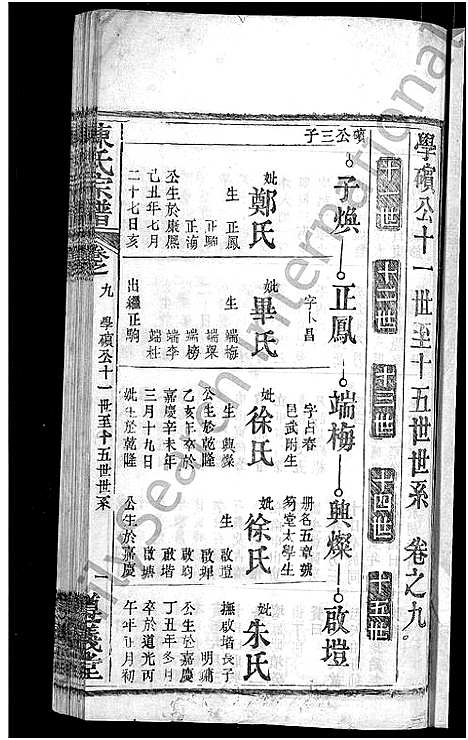 學礦公十一世至十五世世系 卷之九
十一世
十二世
十三世
十四世
十五世
礦公三子
子煥
正鳳
端梅
興燦
啟塏
妣鄭氏
生 正鳳
正駒
正湳
公生於康熙
己丑年七月
二十七日亥
字卜昌
妣畢氏
生 端梅
端榘
端榜
端李
端杜
出繼正駒
字占春
邑武附生
妣徐氏
生 興燦
公生於乾隆
乙亥年卒於
嘉慶辛未年
三月十九日
妣生於乾隆
册名五章號
筠堂太學生
妣徐氏
生 啟塏
啟墀
啟畇
啟塔
啟塘
公生於嘉慶
妣朱氏
撫啟塔長子
明鏽
公生於嘉慶
丁丑年冬月
卒於道光丙
午年月初
陳氏宗譜
卷之
九 學礦公十一世至十五世世系
一
遵義堂
Family Search International